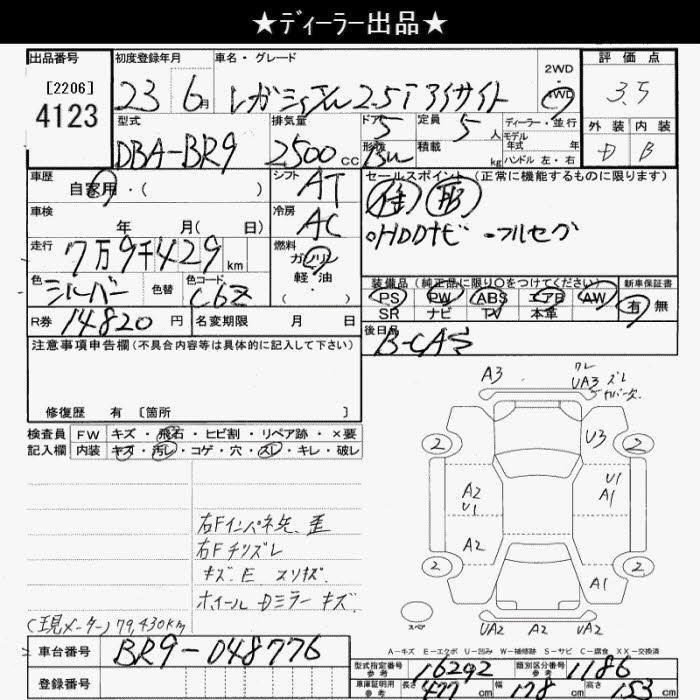 ★ディーラー出品★
出品番号 初度登録年月 車名・グレード 2WD 4WD 評価点
[2206]
4123
23 6月 レガシィ 2.5i アイサイト 3.5
型式 排気量 ドア 定員 ディーラー・並行 外装 内装
DBA-BR9 2500cc 5 5人 モデル年式 年 D B
形状 積載 kg ハンドル 左・右
車歴 自家用・( ) シフト AT セールスポイント(正常に機能するものに限ります)
車検 年 月( 日) 冷房 AC
HDDナビ ・フルセグ
走行 7万9千429km 燃料 ガソリン 軽・油 ・( )
色 シルバー 色替 色コード C6Z 装備品(純正品に限り○をつけてください) 新車保証書
PS PW ABS エアB AW 有 無
SR ナビ TV 本革
R券 14820円 名変期限 月 日 後日品
B-CAS
注意事項申告欄(不具合内容等は具体的に記入して下さい)
修復歴 有 [箇所 ]
検査員 FW キズ・飛石・ヒビ割・リペア跡・×要
記入欄 内装 キズ・汚レ・コゲ・穴・スレ・キレ・破レ
A3 ワレ
UA3 ズレ
カバー欠
2 U3 2
A2 U1 U1 A1
A2
2 A1 2
スペア UA2 A2 UA2
右Fインパネ先、歪
右Fチリズレ
キズ E スリキズ
ホイール Dミラー キズ
(現メーター)79,430km
A-キズ E-エクボ U-凹み W-補修跡 S-サビ C-腐食 XX-交換済
車台番号 BR9-048776
型式指定番号 参考 16292 類別区分番号 参考 1186
登録番号 車庫証明用 参考 長さ 477cm 幅 178cm 高さ 153cm